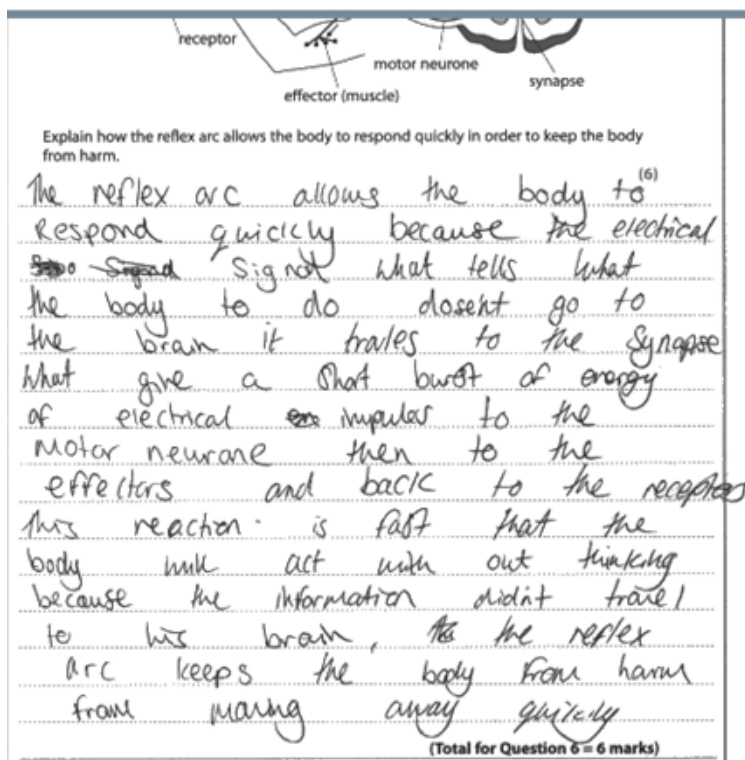 receptor
motor neurone
synapse
effector (muscle)
Explain how the reflex arc allows the body to respond quickly in order to keep the body
from harm.
(6)
The reflex arc allows the body to
Respond quickly because the electrical
signal what tells what
the body to do dosent go to
the brain it travles to the synapse
what give a short burst of energy
of electrical impulas to the
Motor neurone then to the
effectors and back to the receptors
This reaction is fast that the
body will act with out thinking
because the information didnt travel
to his brain, the reflex
arc keeps the body from harm
from moving away quickly
(Total for Question 6 = 6 marks)